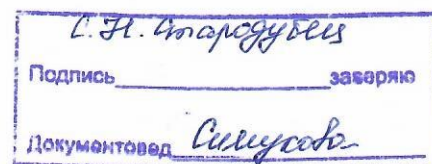 С.Н. Стародубец
Подпись заверяю
Документовед Симукова